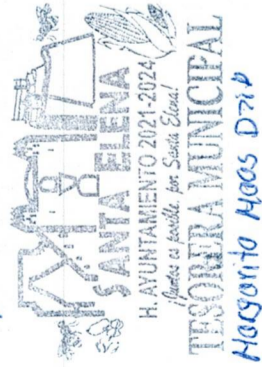 SANTA ELENA
H. AYUNTAMIENTO 2021-2024
¡Juntos es posible por Santa Elena!
TESORERA MUNICIPAL
Margarita Moos Dzib